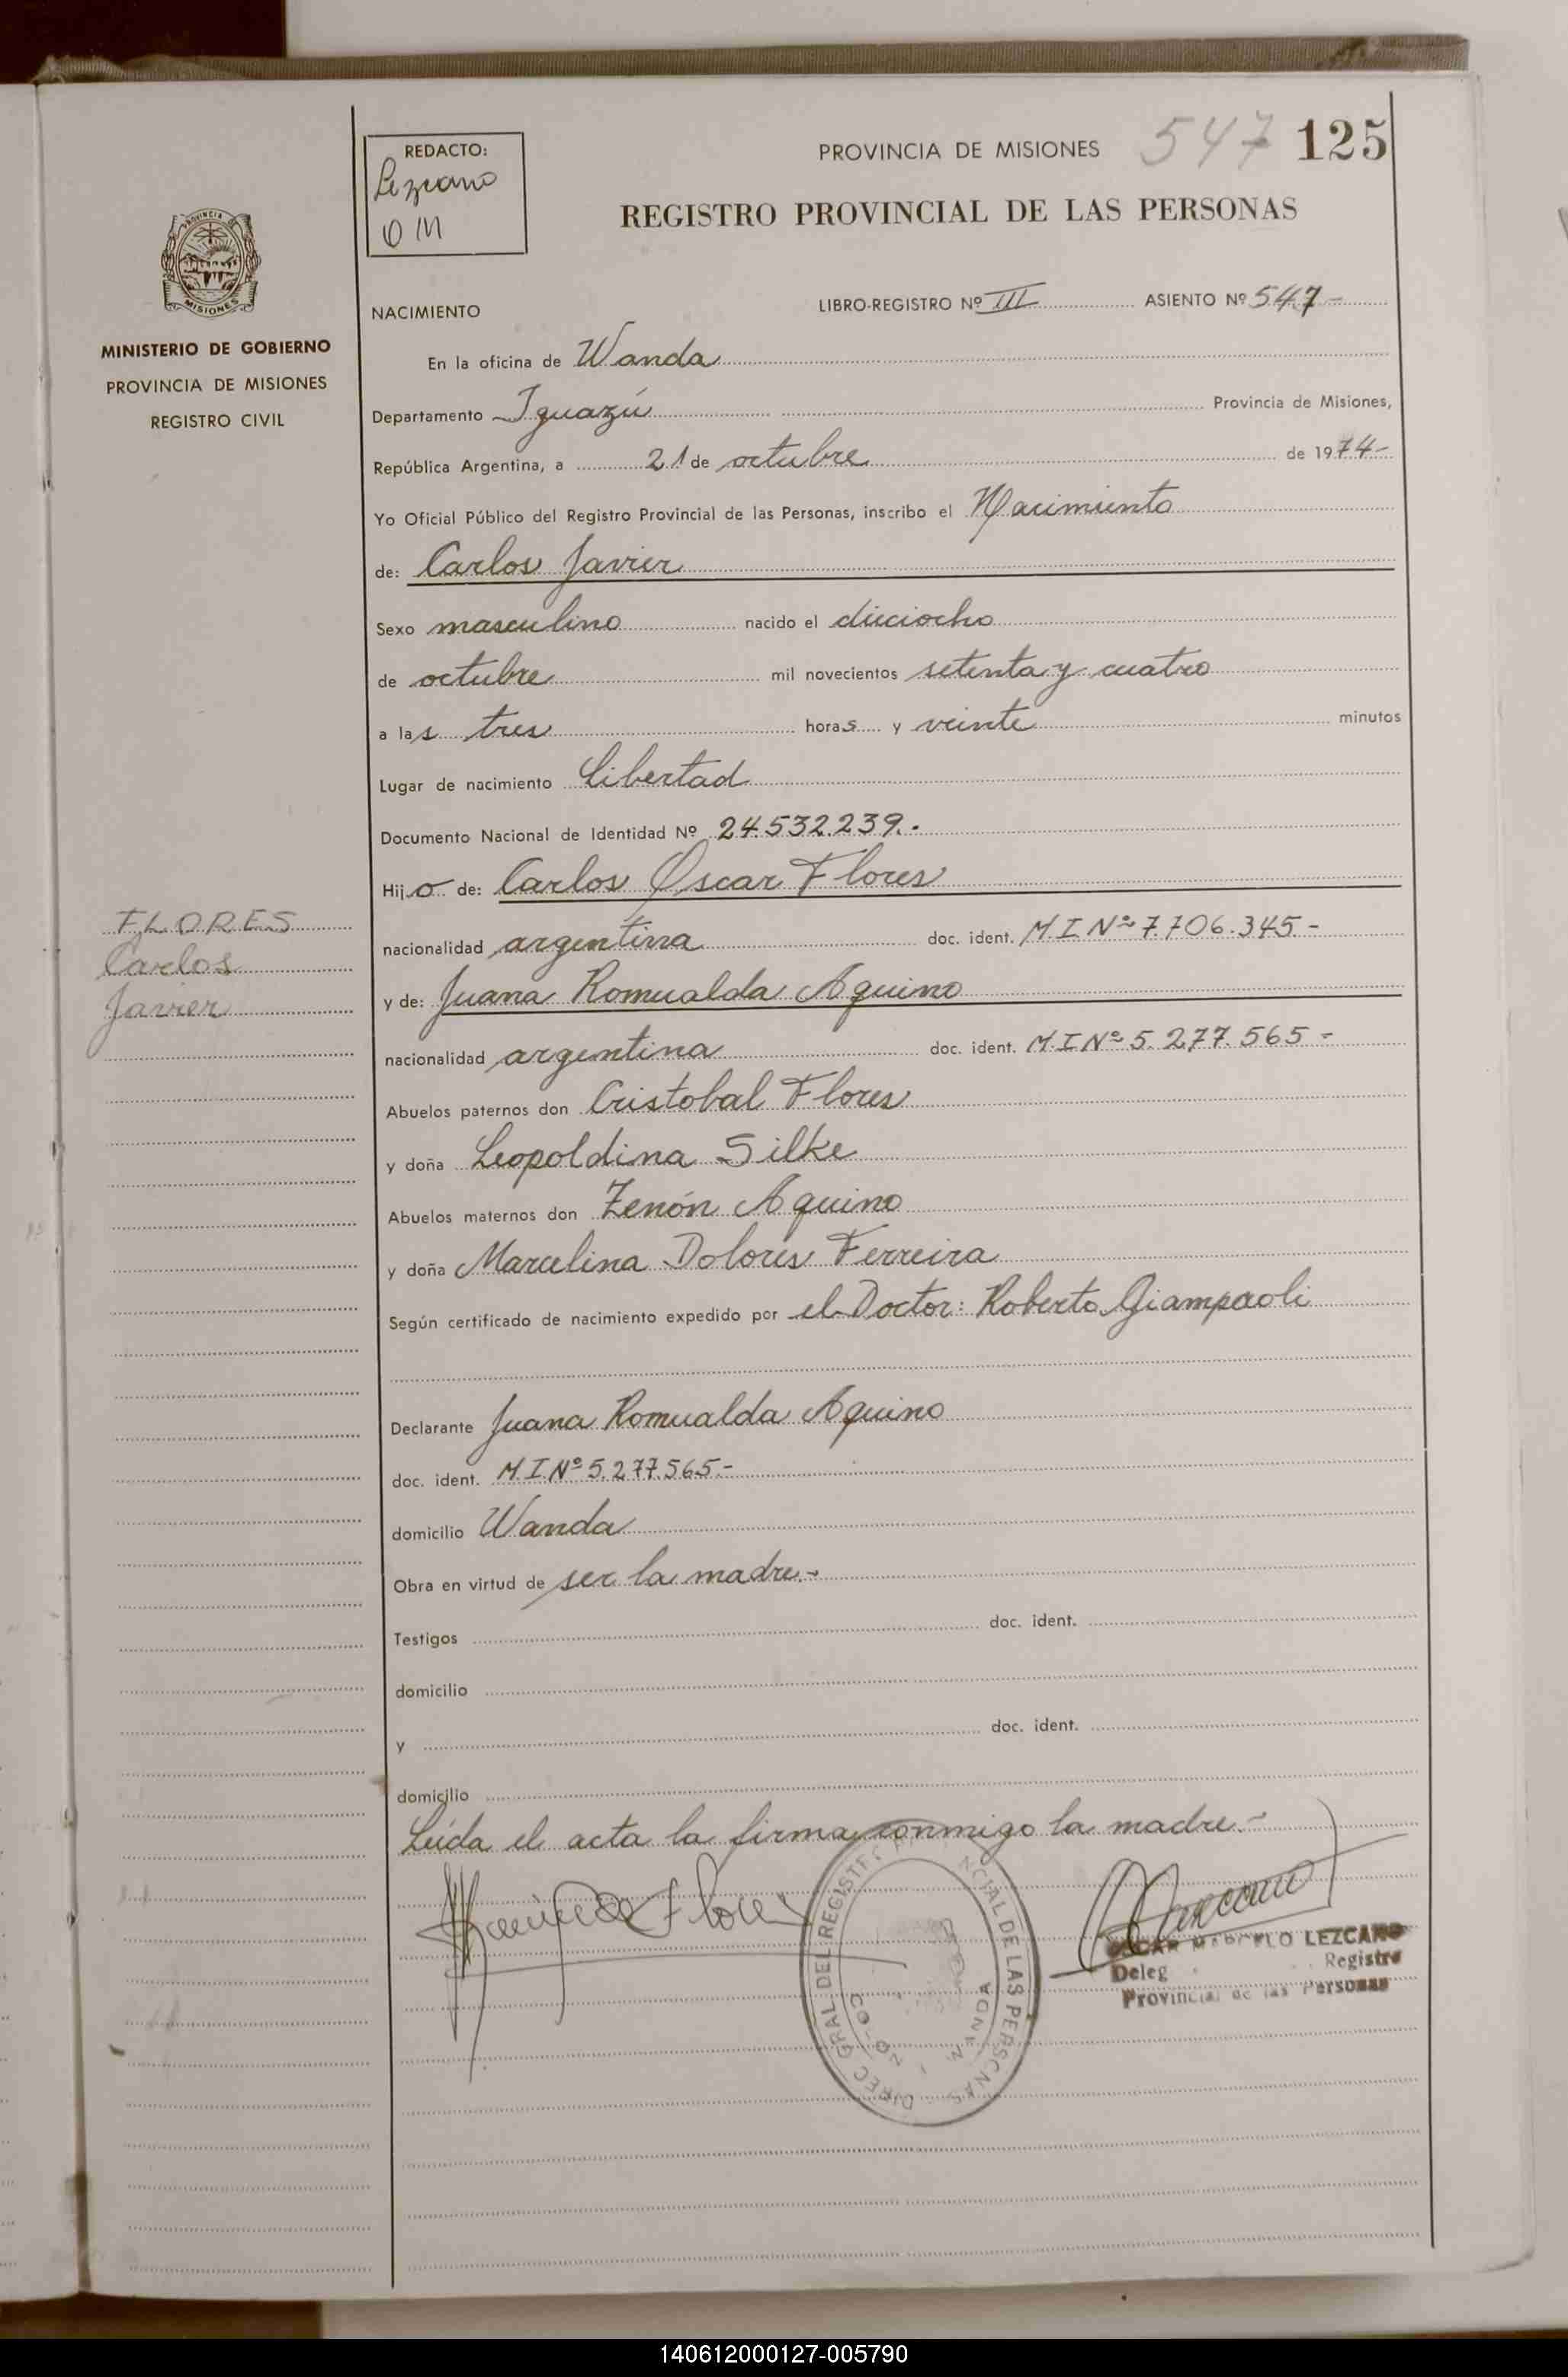 547 125
PROVINCIA DE MISIONES
REDACTO:
Lezcano
O M
REGISTRO PROVINCIAL DE LAS PERSONAS
PROVINCIA
MISIONES
MINISTERIO DE GOBIERNO
PROVINCIA DE MISIONES
REGISTRO CIVIL
NACIMIENTO LIBRO-REGISTRO Nº III ASIENTO Nº 547-
En la oficina de Wanda
Departamento Iguazú Provincia de Misiones,
República Argentina, a 21 de octubre de 1974-
Yo Oficial Público del Registro Provincial de las Personas, inscribo el Nacimiento
de: Carlos Javier
Sexo masculino nacido el dieciocho
de octubre mil novecientos setenta y cuatro
a las tres horas y veinte minutos
Lugar de nacimiento Libertad
Documento Nacional de Identidad Nº 24.532.239.-
Hijo de: Carlos Oscar Flores
nacionalidad argentina doc. ident. M.I.Nº 7.706.345-
y de: Juana Romualda Aquino
nacionalidad argentina doc. ident. M.I.Nº 5.277.565-
Abuelos paternos don Cristobal Flores
y doña Leopoldina Silke
Abuelos maternos don Zenón Aquino
y doña Marcelina Dolores Ferreira
Según certificado de nacimiento expedido por el Doctor: Roberto Giampaoli
Declarante Juana Romualda Aquino
doc. ident. M.I.Nº 5.277.565-
domicilio Wanda
Obra en virtud de ser la madre.-
Testigos doc. ident.
domicilio
y doc. ident.
domicilio
Leída el acta la firma conmigo la madre.-
FLORES
Carlos
Javier
Flores
DIREC GRAL DEL REGISTRO PROVINCIAL DE LAS PERSONAS
WANDA
Lezcano
OSCAR MARCELO LEZCANO
Deleg Registro
Provincial de las Personas
140612000127-005790